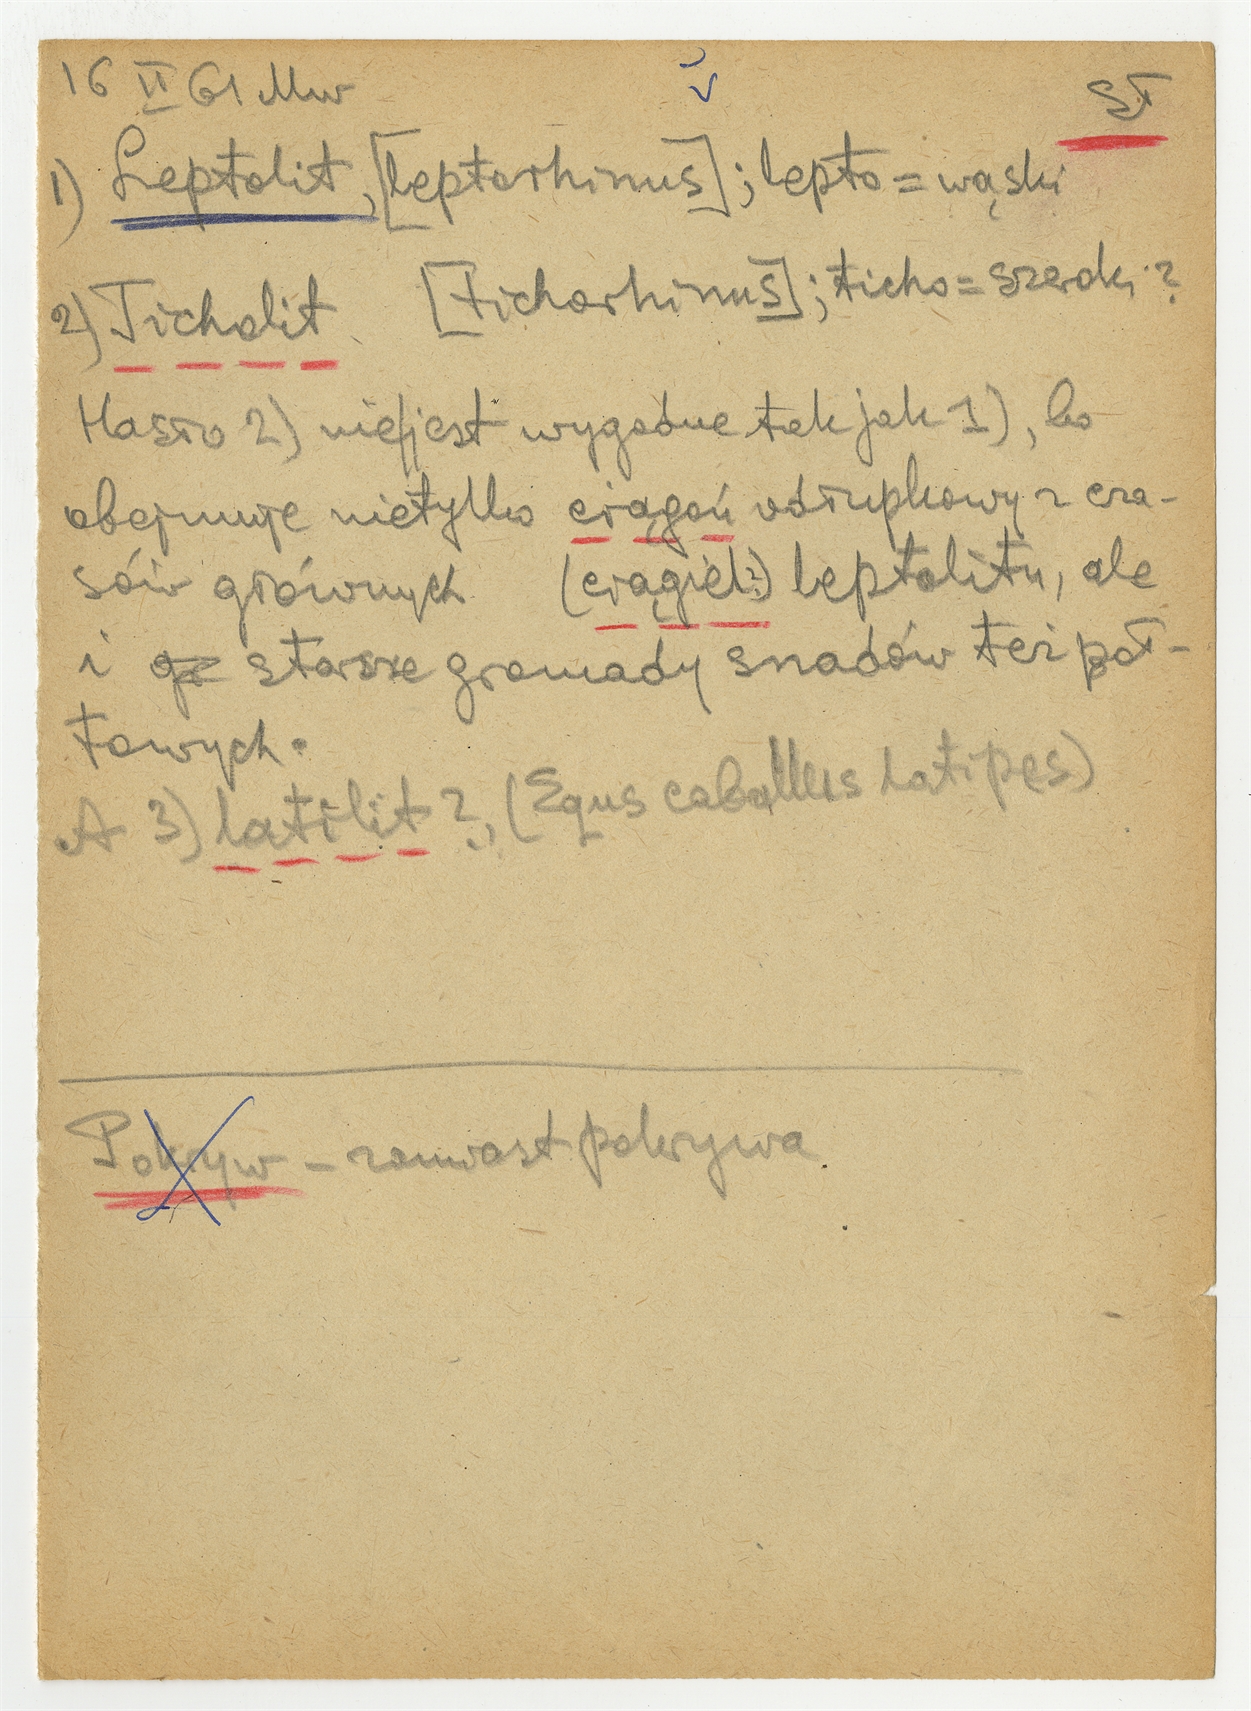 16 II 61 Mw sł
1) Leptolit, [leptorhinus]; lepto = wąski
2) Ticholit [tichorhinus]; ticho = szeroki?
Hasło 2) nie jest wygodne tak jak 1), bo
obejmuje nietylko ciągoń odłupkowy z cza-
sów głównych (ciągiel?) leptolitu, ale
i starsze gromady śladów też poł-
towych.
A 3) latilit?, (Equs caballus latipes)
Pokryw – zamiast pokrywa